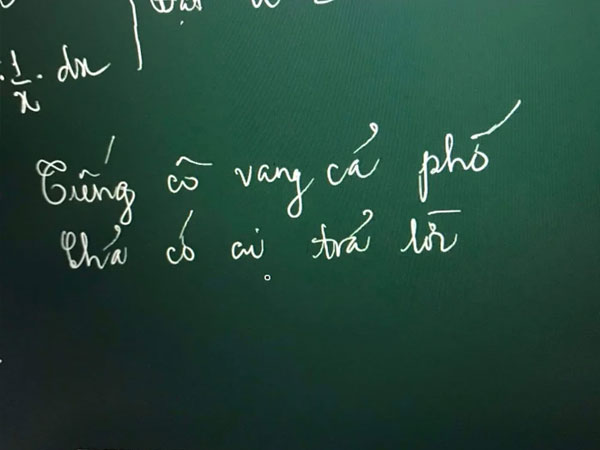 Đặt u
1/x . dx
Tiếng cô vang cả phố
Chả có ai trả lời